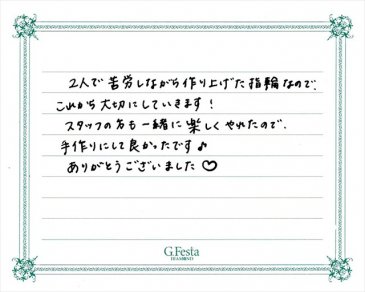 2人で苦労しながら作り上げた指輪なので、
これから大切にしていきます！
スタッフの方も一緒に楽しくやれたので、
手作りにして良かったです♪
ありがとうございました♡
G.Festa
DIAMOND